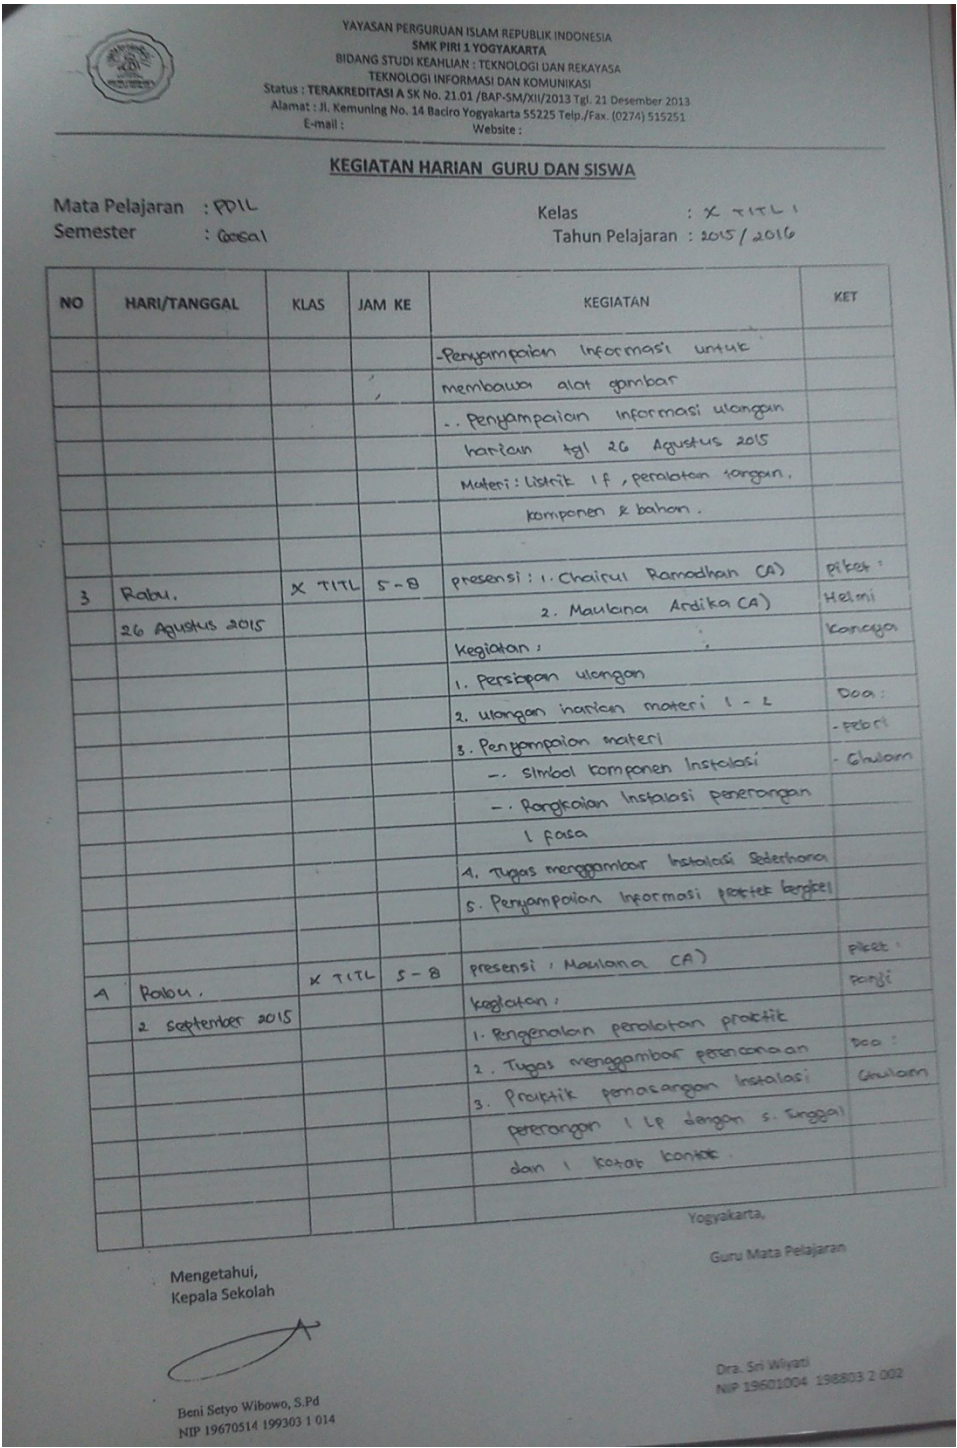 YAYASAN PERGURUAN ISLAM REPUBLIK INDONESIA
SMK PIRI 1 YOGYAKARTA
BIDANG STUDI KEAHLIAN : TEKNOLOGI DAN REKAYASA
TEKNOLOGI INFORMASI DAN KOMUNIKASI
Status : TERAKREDITASI A SK No. 21.01 /BAP-SM/XII/2013 Tgl. 21 Desember 2013
Alamat : Jl. Kemuning No. 14 Baciro Yogyakarta 55225 Telp./Fax. (0274) 515251
E-mail : Website :
KEGIATAN HARIAN GURU DAN SISWA
Mata Pelajaran : PPIL Kelas : X TITL 1
Semester : Gasal Tahun Pelajaran : 2015 / 2016
NO HARI/TANGGAL KLAS JAM KE KEGIATAN KET
-Penyampaian Informasi untuk
membawa alat gambar
-. Penyampaian Informasi ulangan
harian tgl 26 Agustus 2015
Materi : Listrik 1 f , peralatan tangan,
komponen & bahan .
3 Rabu, X TITL 5 - 8 presensi : 1. Chairul Ramadhan (A) piket :
26 Agustus 2015 2. Maulana Ardika (A) Helmi
Kegiatan : Kanaya
1. Persiapan ulangan
2. ulangan harian materi 1 - 2 Doa :
3. Penyampaian materi - Febri
-. Simbol komponen Instalasi - Ghulam
-. Rangkaian Instalasi penerangan
1 fasa
4. Tugas menggambar Instalasi Sederhana
5. Penyampaian Informasi praktek bengkel
4 Rabu, X TITL 5 - 8 presensi : Maulana (A) piket :
2 September 2015 kegiatan : Panji
1. Pengenalan peralatan praktik
2. Tugas menggambar perencanaan Doa :
3. Praktik pemasangan Instalasi Ghulam
penerangan 1 LP dengan s. Tunggal
dan 1 kotak kontak.
Yogyakarta,
Mengetahui, Guru Mata Pelajaran
Kepala Sekolah
Beni Setyo Wibowo, S.Pd Dra. Sri Wiyati
NIP 19670514 199303 1 014 NIP 19601004 198803 2 002